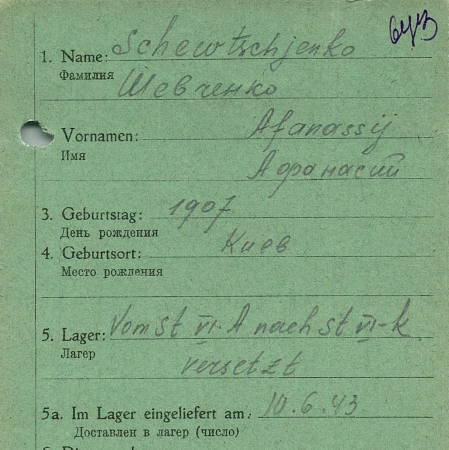 1. Name: Schewtschjenko
Фамилия
Шевченко
Vornamen: Afanassij
Имя
Афанасий
3. Geburtstag: 1907
День рождения
4. Geburtsort: Киев
Место рождения
5. Lager: Vom St VI-A nach St VI-K
Лагер
versetzt
5a. Im Lager eingeliefert am: 10.6.43
Доставлен в лагер (число)